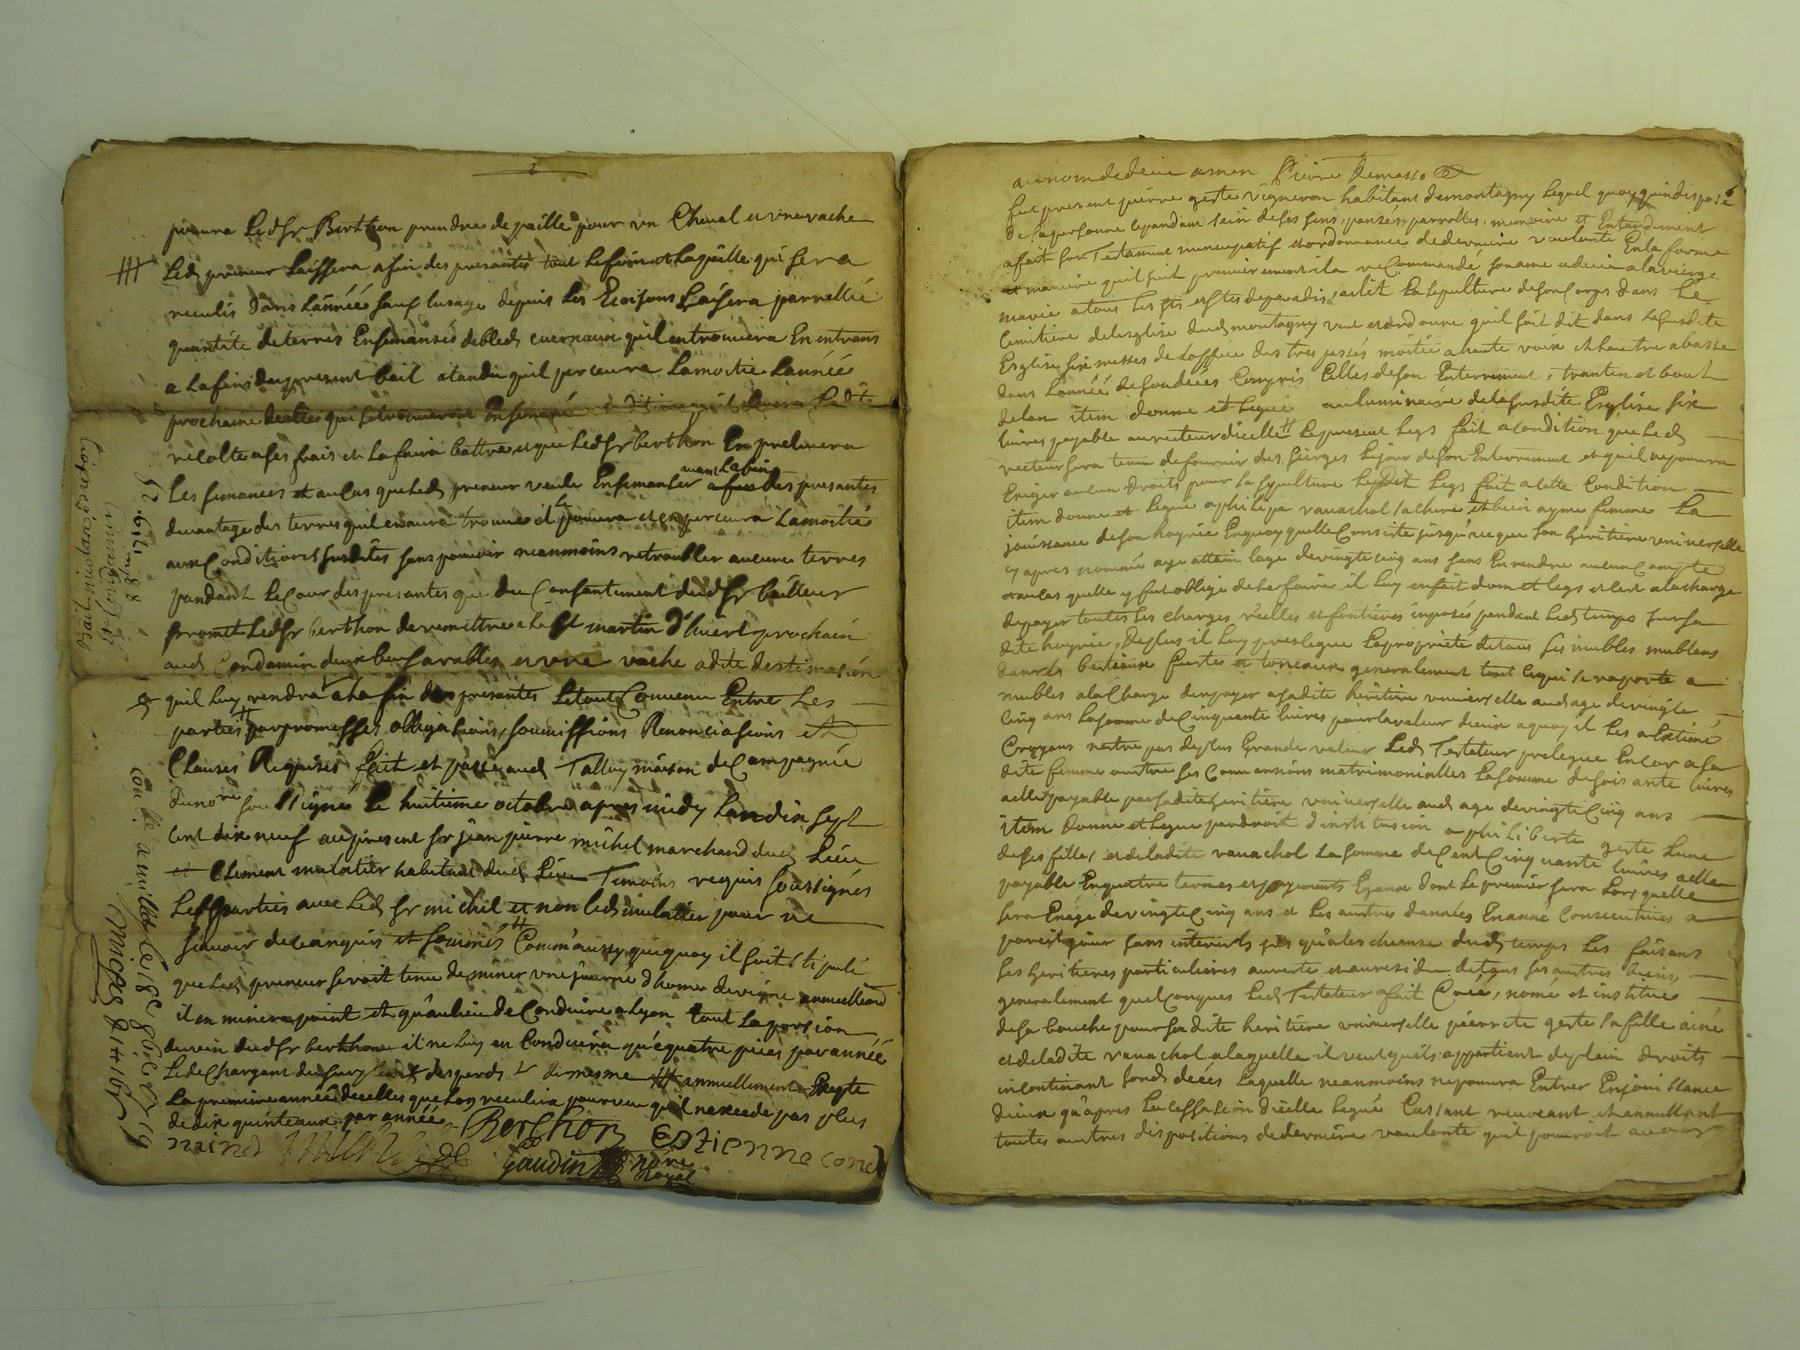 pourra Ledsr Berthon prendre de paille pour un Cheval et une vache
Led preneur Laissera a fin des presantes tout Le foin et La paille qui sera
reculis dans L'année sauf lusage depuis Les Laissera parreillie
quantité de terres Ensemansés debled quil en trouvera En entrans
a La fin du present bail atandu quil percevra La moitie L'année
prochaine de celles qui se trouveront Ensemancé
récolte a ses frais et La faira battre et que Ledsr berthon En prelevera
Les semances et au cas que Led preneur veuille Ensemanser avant La fin des presantes
davantage des terres quil en aura trouvé il Le pourra et en percevra La moitié
aux Conditions susdites sans pouvoir neanmoins retroubler aucune terres
pandant Le Cour des presantes que du Consantement dudsr bailleur
promet Ledsr berthon de remettre a La st martin d'huert prochain
aud Condamin deux beuf arables et une vache a dite destimasion
quil luy rendra a La fin des presantes Le tout Convenu Entre Les
parties par promesses obligasions soumissions Renonciasions et
Clauses Requises fait et passé aud Talluy maison de Campagnie
du nore soussigné Le huitieme octobre apres midy Lan dix sept
cent dix neuf au present sr jean pierre mihel marchand dud Lieu
et Clement mulatier habitant dud Lieu Temoins requis soussignés
Les parties avec Led sr michel et non led mulatier pour ne
sçavoir de ce anquis et sommés Comm'aussy quoy quil soit stipulé
que Led preneur seroit tenu de miner une journé d'homme de vigne annuellemt
il en minera point et qu'au lieu de Conduire a Lyon tout La porsion
du vin dudsr berthon il ne luy en Conduira que quatre pieces par année
Le de Chargant du surplus et de mesme annuellement Exepte
La premiere année de celles que Lon reculira pourveu quil n'excede pas plus
de dix quinteaux par année Berthon Estienne cond
maind michel
gaudin nore Royal
Conle a millery Le 18e 8bre 1719
au nom de dieu amen Pierre
fut present pierre geste vigneron habitant de montagny Lequel quoy quindisposé
de sa personne cepandant sain de ses sens, pansées, parrolles, memoire et Entandement
a fait son Testament nuncupatif et ordonnance de derniere voulante En la forme
et maniere quil suit premierement il a reCommandé son ame a dieu a la vierge
marie a tous Les sts et stes de paradis, a elit La sepulture de son Corps dans Le
Cimitiere de lesglise dud montagny veut et ordonne quil soit dit dans La susdite
Esglise six messes de Loffice des trespassés moitie a haute voix et L'autre a basse
dans L'année de son decés Compris Celles de son Enterrement, trantin et bout
de lan item donne et legue au luminaire de la susdite Esglise six
livres payable au recteur dicelle Le present legs fait a condition que Led
recteur sera tenu de fournir des sierges Le jour de son Enterrement et quil ne pourra
Exiger aucun droits pour sa sepulture Ledit Legs fait a cette Condition
item donne et Legue a philipa ravachol sa chere et bien aymé femme La
jouissance de son hoyrie En quoy quelle Consiste jusqu'a ce que son heritiere universelle
cy apres nommé aye attein Lage de vingt cinq ans sans En rendre aucun Compte
et au cas quelle y fut obligé de Le faire il Luy en fait dom et legs et ce a la charge
de payer toutes Les charges reelles et fontieres imposés pandant Led temps sur sa
dite hoyrie, De plus il Luy preslegue La proprieté de tous ses meubles meublans
danrés bestiaux futes et toneaux generalement tout Ce qui se raporte a
meubles a La Charge den payer a sa dite heritiere universelle aud age de vingt
Cinq ans La somme de Cinquante livres pour La valeur diceux a quoy il Les a Estimé
Croyans nestre pas de plus Grande valeur Led Testateur prelegue Encor a sa
dite femme outre ses Convansions matrimonialles La somme de soisante livres
a elle payable par sa dite heritiere universelle aud age de vingt Cinq ans
item donne et Legue par droit d'institusion a philiberte geste Lune
de ses filles et de La dite ravachol La somme de Cent Cinquante livres a elle
payable En quatre termes et payements Egaux dont Le premier sera Lors quelle
sera En age de vingt Cinq ans et Les autres d'années En anné Consecutives a
pareil jour sans interests jusqu'a les cheance dud temps Les faisans
ses heritieres particulieres au reste et au residu de tous ses autres biens,
generalement quelConques Led Testateur a fait Creé, nomé et institué
de sa bouche pour sa dite heritiere universelle pierrete geste sa fille ainé
et de La dite ravachol a laquelle il veut quils appartient de plain droits
incontinant sond decés Laquelle neanmoins ne pourra Entrer En jouissance
diceux qu'apres La cessasion dicelle legué Cassant revocant et annullant
toutes autres dispositions de derniere voulante quil pourroit avoir